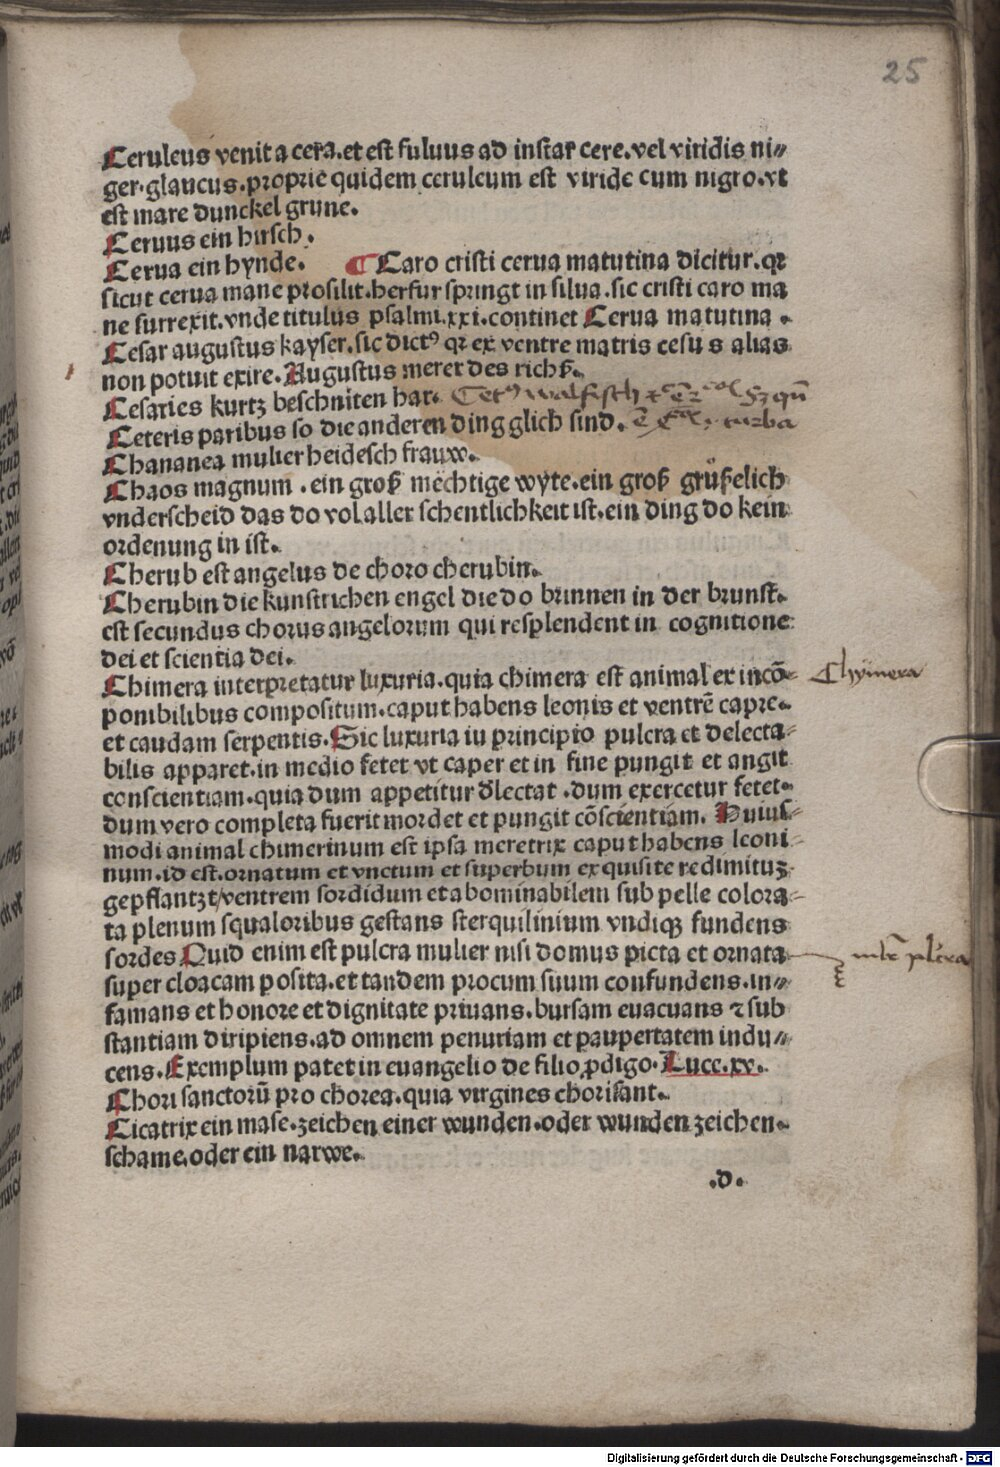 25
Ceruleus venit a cera.et est fuluus ad instar cere.vel viridis ni⸗
ger.glaucus.proprie quidem ceruleum est viride cum nigro.vt
est mare dunckel grune.
Ceruus ein hirsch.
Cerua ein hynde. ¶ Caro cristi cerua matutina dicitur.qꝛ
sicut cerua mane prosilit.herfur springt in silua.sic cristi caro ma
ne surrexit.vnde titulus psalmi.xxi.continet Cerua matutina.
Cesar augustus kayser.sic dictꝰ qꝛ ex ventre matris cesus alias
non potuit exire.Augustus merer des richſ.
Cesaries kurtz beschniten har. Cetꝰ walfisch
Ceteris paribus so die anderen ding glich sind. turba
Chananea mulier heidesch frauw.
Chaos magnum.ein groß mechtige wyte.ein groß grüßelich
vnderscheid das do vol aller schentlichkeit ist.ein ding do kein
ordenung in ist.
Cherub est angelus de choro cherubin.
Cherubin die kunstrichen engel die do brinnen in der brunst.
est secundus chorus angelorum qui resplendent in cognitione
dei et scientia dei.
Chimera interpretatur luxuria.quia chimera est animal ex incō⸗ Chymera
ponibilibus compositum.caput habens leonis et ventrē capre.
et caudam serpentis.Sic luxuria iu principio pulcra et delecta⸗
bilis apparet.in medio fetet vt caper et in fine pungit et angit
conscientiam.quia dum appetitur dlectat.dum exercetur fetet.
dum vero completa fuerit mordet et pungit cōscientiam. Huius⸗
modi animal chimerinum est ipsa meretrix caput habens leoni⸗
num.id est.ornatum et vnctum et superbum exquisite redimituꝫ
gepflantzt/ventrem sordidum et abominabilem sub pelle colora⸗
ta plenum squaloribus gestans sterquilinium vndiqꝫ fundens
sordes Quid enim est pulcra mulier nisi domus picta et ornata
super cloacam posita.et tandem procum suum confundens.in⸗
famans et honore et dignitate priuans.bursam euacuans ⁊ sub
stantiam diripiens.ad omnem penuriam et paupertatem indu⸗
cens.Exemplum patet in euangelio de filio ꝓdigo.Luce.xv.
Chori sanctorū pro chorea.quia virgines chorisant.
Cicatrix ein mase.zeichen einer wunden.oder wunden zeichen.
schame.oder ein narwe.
.d.
Digitalisierung gefördert durch die Deutsche Forschungsgemeinschaft - DFG